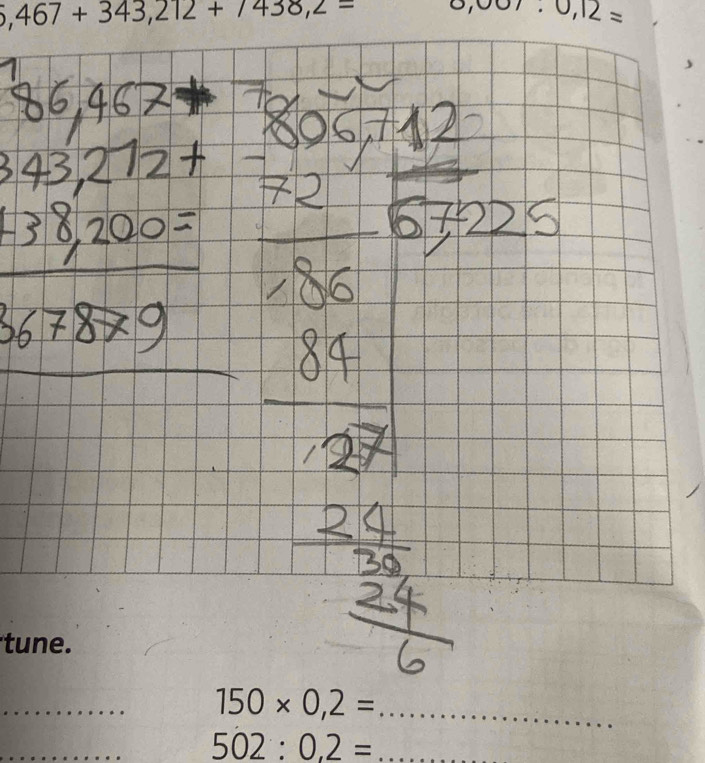 5,467 + 343,212 + 7438,2 =
8,067 : 0,12 =
1
86,467+
343,212+
438,200=
367879
7
806,7 12
- 72
67,225
,86
84
,27
24
30
24
6
tune.
............ 150 × 0,2 = ....................
............ 502 : 0,2 = ............